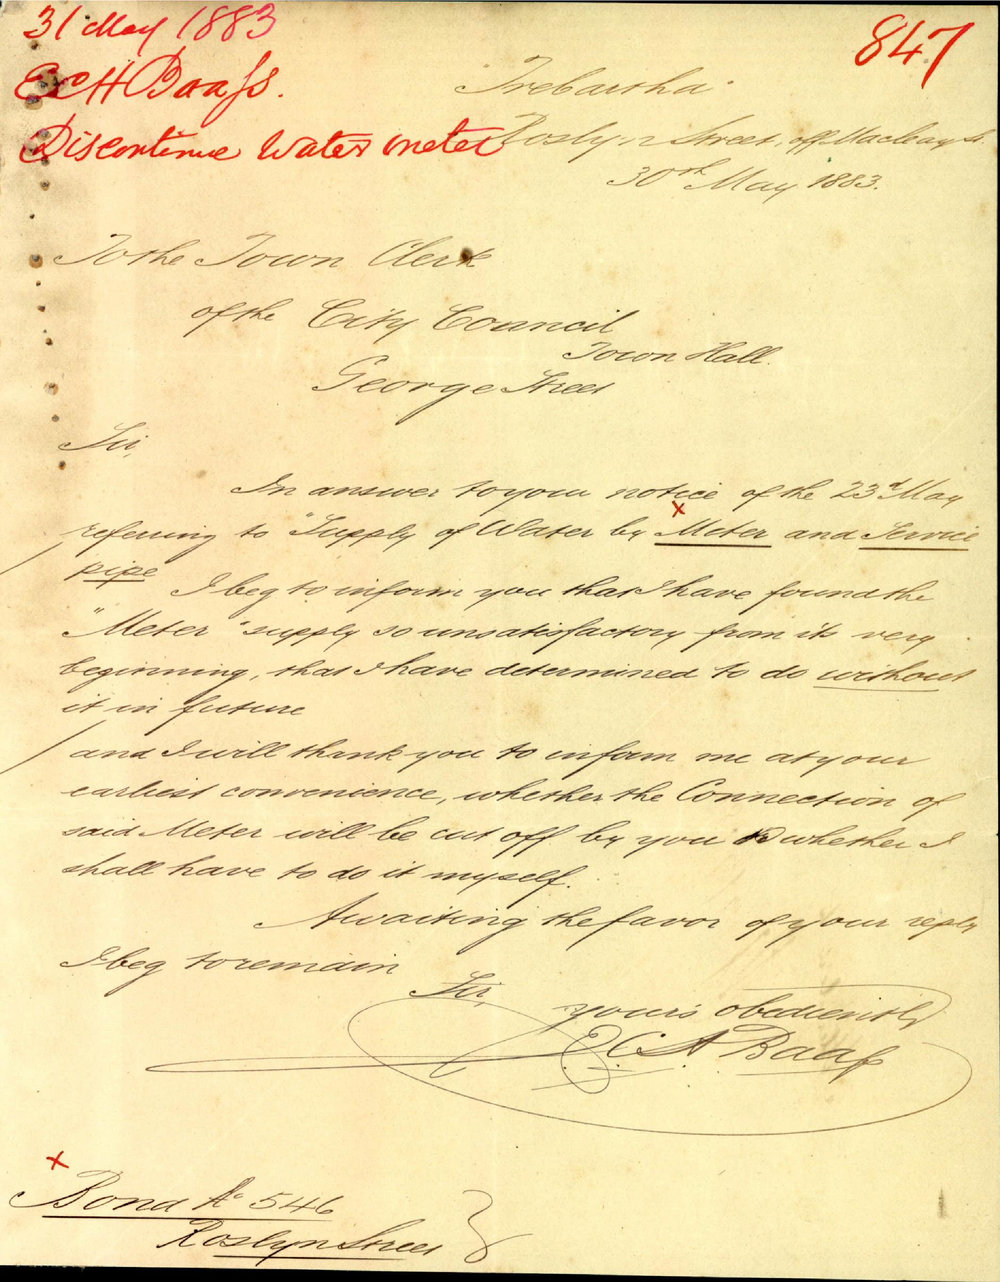 31 May 1883
847
E C H Baass.
"Trebartha"
Discontinue Water meter
Roslyn Street, off Macleay St.
30th May 1883.
To the Town Clerk
of the City Council
Town Hall.
George Street
Sir,
In answer to your notice of the 23d May
x
referring to "Supply of Water by Meter and Service
pipe
I beg to inform you that I have found the
"Meter" supply so unsatisfactory from its very
beginning, that I have determined to do without
it in future
and I will thank you to inform me at your
earliest convenience, whether the Connection of
said Meter will be cut off by you whether I
shall have to do it myself.
Awaiting the favor of your reply
I beg to remain
Sir,
yours obediently
E. C. A. Baass
x
Bond No 546
Roslyn Street